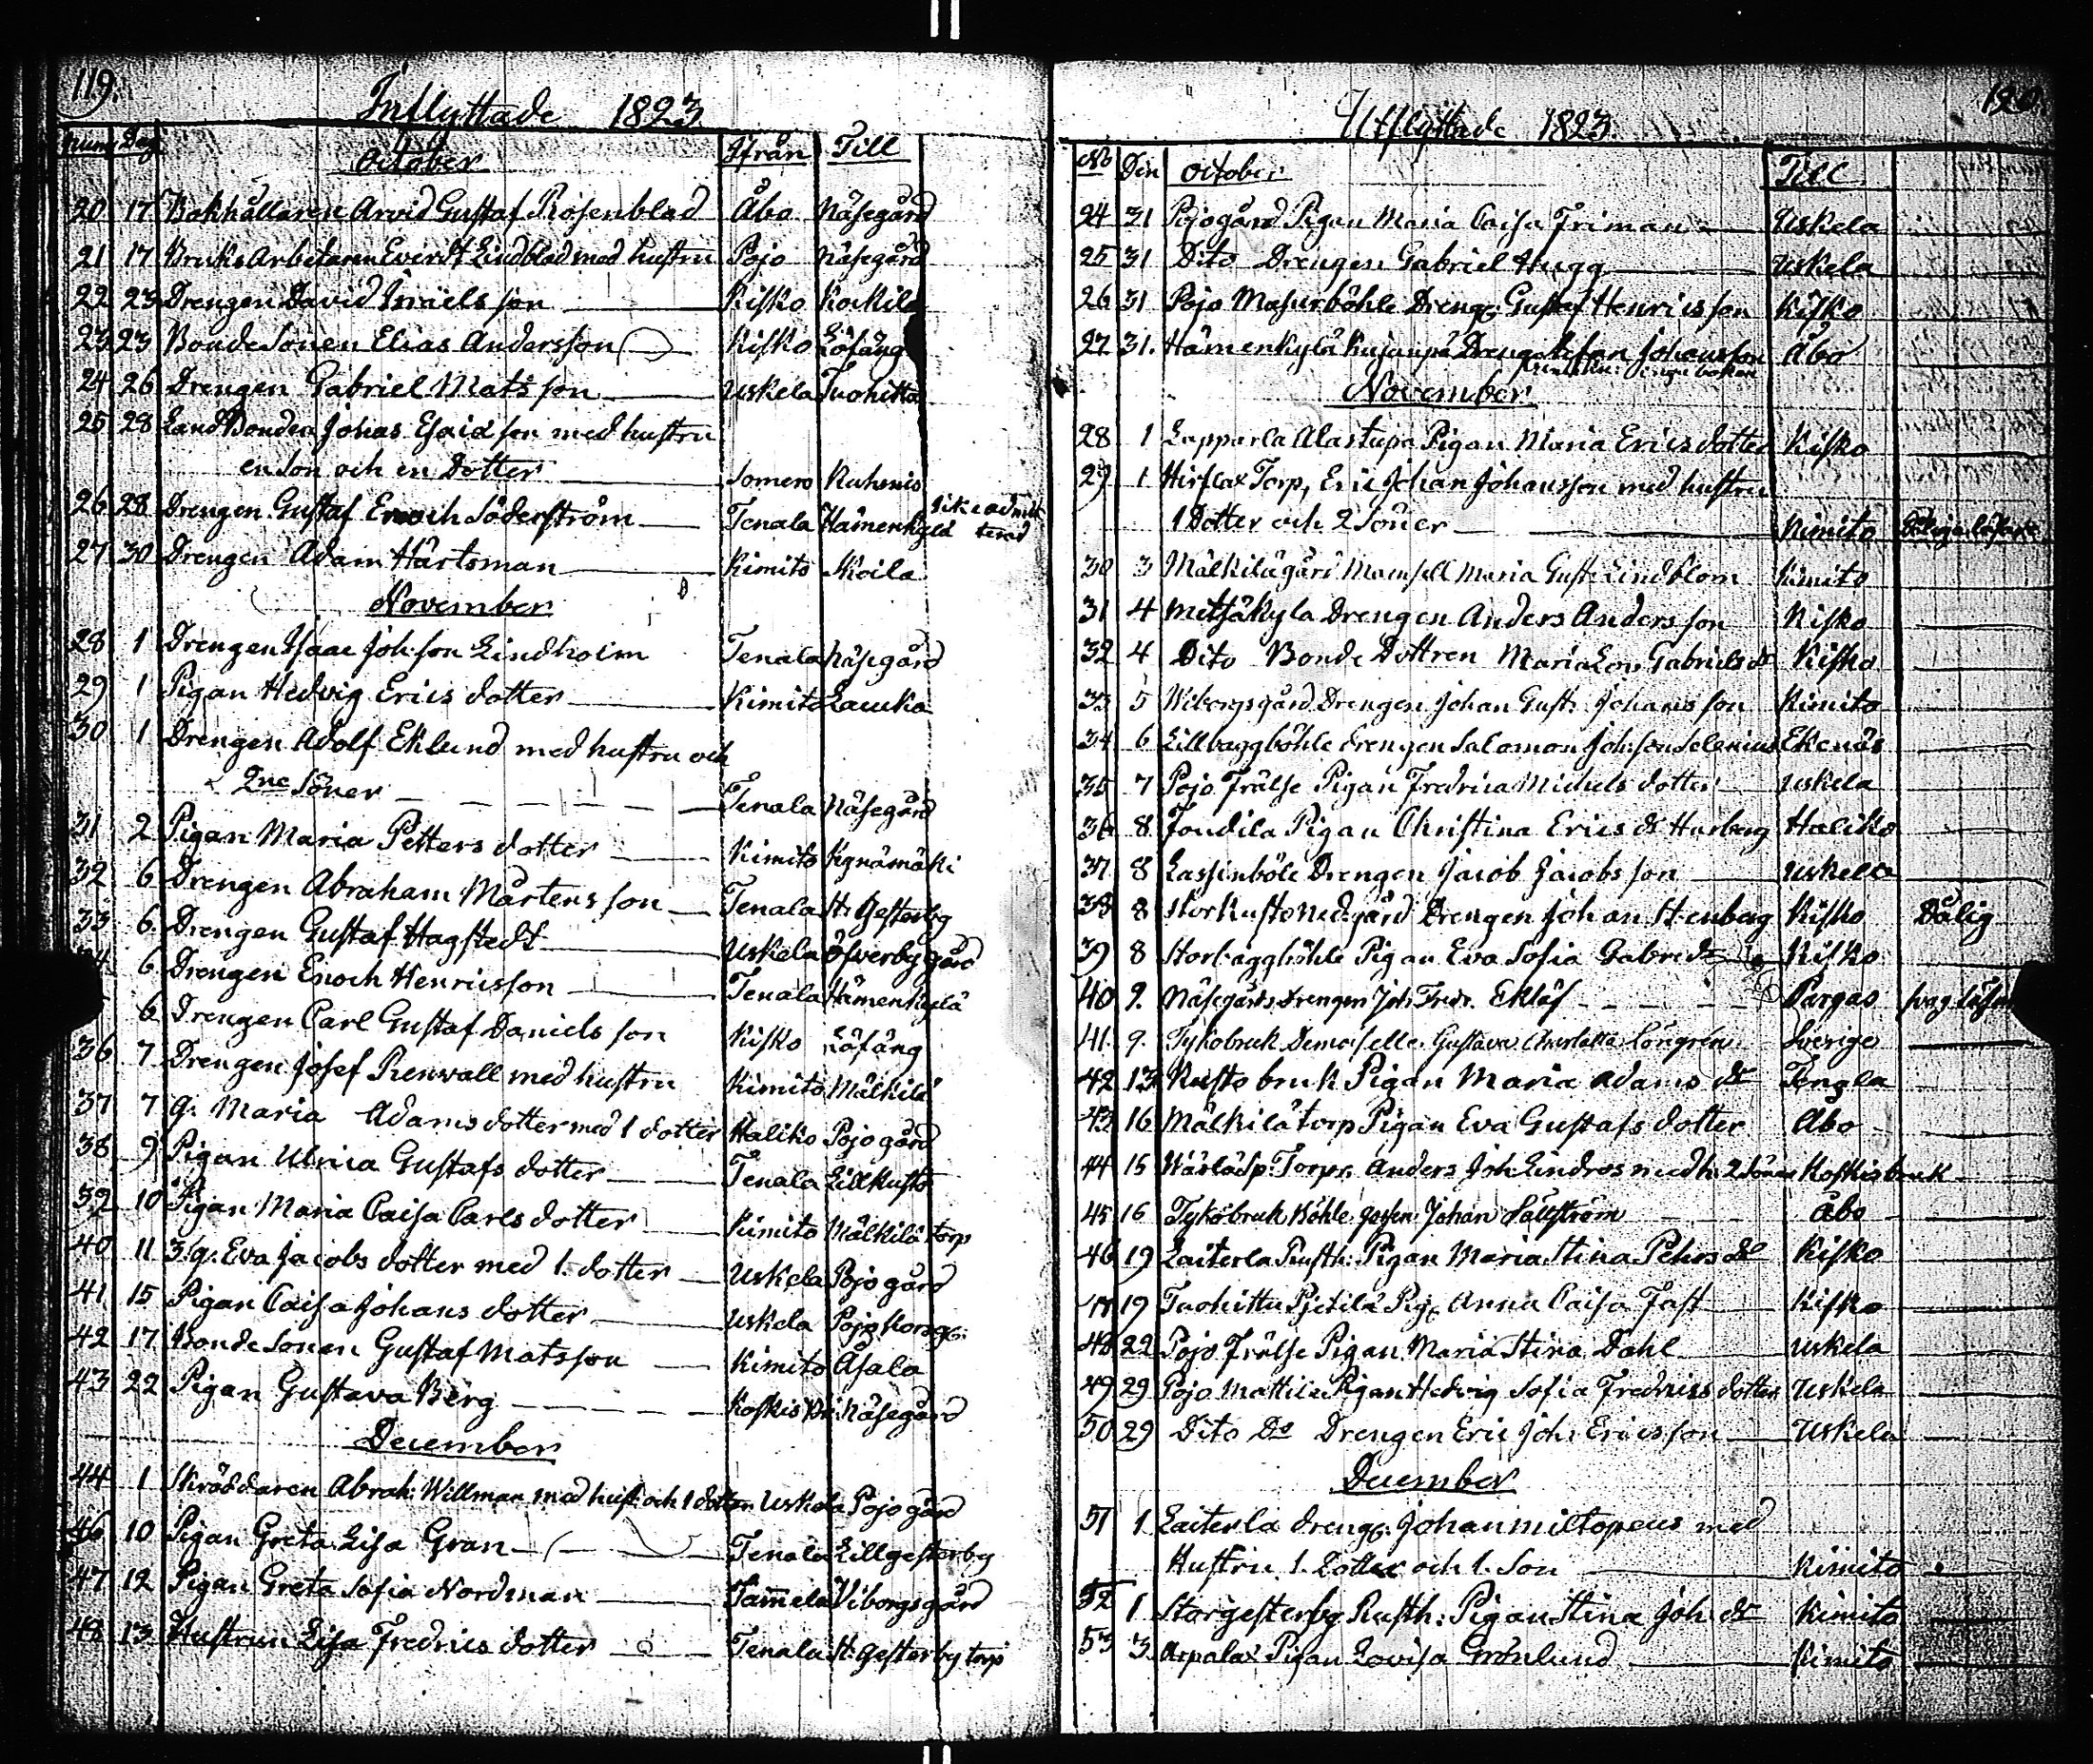 119.
Inflyttade 1823
Num Dag October Ifrån Till
20 17 Bokhållaren Arvid Gustaf Rosenblad Åbo Näsegård
21 17 Bruks Arbetaren Lindblad med hustru Pojo Näsegård
22 23 Drengen David Israels son Kisko Kockila
23 23 Bonde Sonen Elias Andersson Kisko Löfång
24 26 Drengen Gabriel Mats son Uskela Tuohitta
25 28 Land Bonden Johas Esaia son med hustru
en Son och en Dotter Somero Ruhmis
26 28 Drengen Gustaf Enoch Söderström Tenala Hämenkylä
27 30 Drengen Adam Hartsman Kimito Koila
November
28 1 Drengen Isaac Joh: son Lindholm Tenala Näsegård
29 1 Pigan Hedvig Erics dotter Kimito Laucka
30 1 Drengen Adolf Eklund med hustru och
2ne Söner Tenala Näsegård
31 2 Pigan Maria Petters dotter Kimito
32 6 Drengen Abraham Mårtens son Tenala St: Gesterby
33 6 Drengen Gustaf Hagstedt Uskela Öfverby gård
34 6 Drengen Enoch Henricsson Tenala Hämenkylä
6 Drengen Carl Gustaf Daniels son Kisko Löfång
36 7 Drengen Josef Renvall med hustru Kimito Mälkilä
37 7 Q: Maria Adams dotter med 1 dotter Haliko Pojo gård
38 9 Pigan Ulrica Gustafs dotter Tenala Lillkusto
39 10 Pigan Maria Caisa Carls dotter Kimito Mälkilä torp
40 11 Eva Jacobs dotter med 1. dotter Uskela Pojo gård
41 15 Pigan Caisa Johans dotter Uskela Pojo
42 17 Bonde Sonen Gustaf Matsson Kimito Åsala
43 22 Pigan Gustava Berg Koskis Br: Näsegård
December
44 1 Skräddaren Abrah: Willman med hust: och 1 dotter Uskela Pojo gård
46 10 Pigan Greta Lisa Gran Tenala Lillgesterby
47 12 Pigan Greta Sofia Nordman Tammela Viborgs gård
48 13 Hustrun Lisa Fredrics dotter Tenala St: Gesterby torp
120.
Utflyttade 1823.
No Den October Till
24 31 Pojogård Pigan Maria Caisa Friman Uskela
25 31 Dito Drengen Gabriel Hugg Uskela
26 31 Pojo Masurböhle Dreng: Gustaf Henricsson Kisko
27 31. Hämenkylä Dreng Stefan Johansson Åbo
November
28 1 Lapparla Alastupa Pigan Maria Erics dotter Kisko
29 1 Hirslax Torp, Eric Johan Johansson med hustru
1 Dotter och 2 Söner Kimito
30 3 Mälkilägård Mamsell Maria Gust: Lindblom Kimito
31 4 Metsäkyla Drengen Anders Anders son Kisko
32 4 Dito Bonde Dottren Maria Lov: Gabriels dr Kisko
33 5 Wiborgsgård Drengen Johan Gust: Johans son Kimito
34 6 Lillbaggböhle drengen Salomon Joh: son Selenius Ekenäs
35 7 Pojo Frälse Pigan Fredrica Michels dotter Uskela
36 8 Jondila Pigan Christina Erics dr Hurberg Haliko
37 8 Lassinböle Drengen Jacob Jacobs son Uskela
38 8 Storkusto Nedgård Drengen Johan Stenberg Kisko Dålig
39 8 Storbaggböhle Pigan Eva Sofia Kisko
40 9. Näsegårds Drengen Joh: Fredr. Eklöf Pargas
41. 9. Tykobruk Demoiselle Gustava Charlotta Sverige
42 13 Kusto bruk Pigan Maria Adams dr Tenala
43 16 Mälkilä torp Pigan Eva Gustafs dotter Åbo
44 15 Torpr: Anders Joh: Lindros med h: 2 Söner Koskis bruk
45 16 Tykobruk Böhle Johan Sällström Åbo
46 19 Laiterla Rusth: Pigan Maria Stina Pehrs dr Kisko
47 19 Tuohittu Pig: Anna Caisa Fast Kisko
48 22 Pojo Frälse Pigan Maria Stina Dahl Uskela
49 29 Pojo Mattila Pigan Hedvig Sofia Fredrics dotter Uskela
50 29 Dito Do Drengen Eric Joh: Ericsson Uskela
December
51 1 Laiterla dreng: Johan Miltopeus med
Hustru 1. Dotter och 1. Son Kimito
52 1 Storgesterby Rusth: Pigan Stina Joh: dr Kimito
53 3. Arpalax Pigan Lovisa Grönlund Kimito